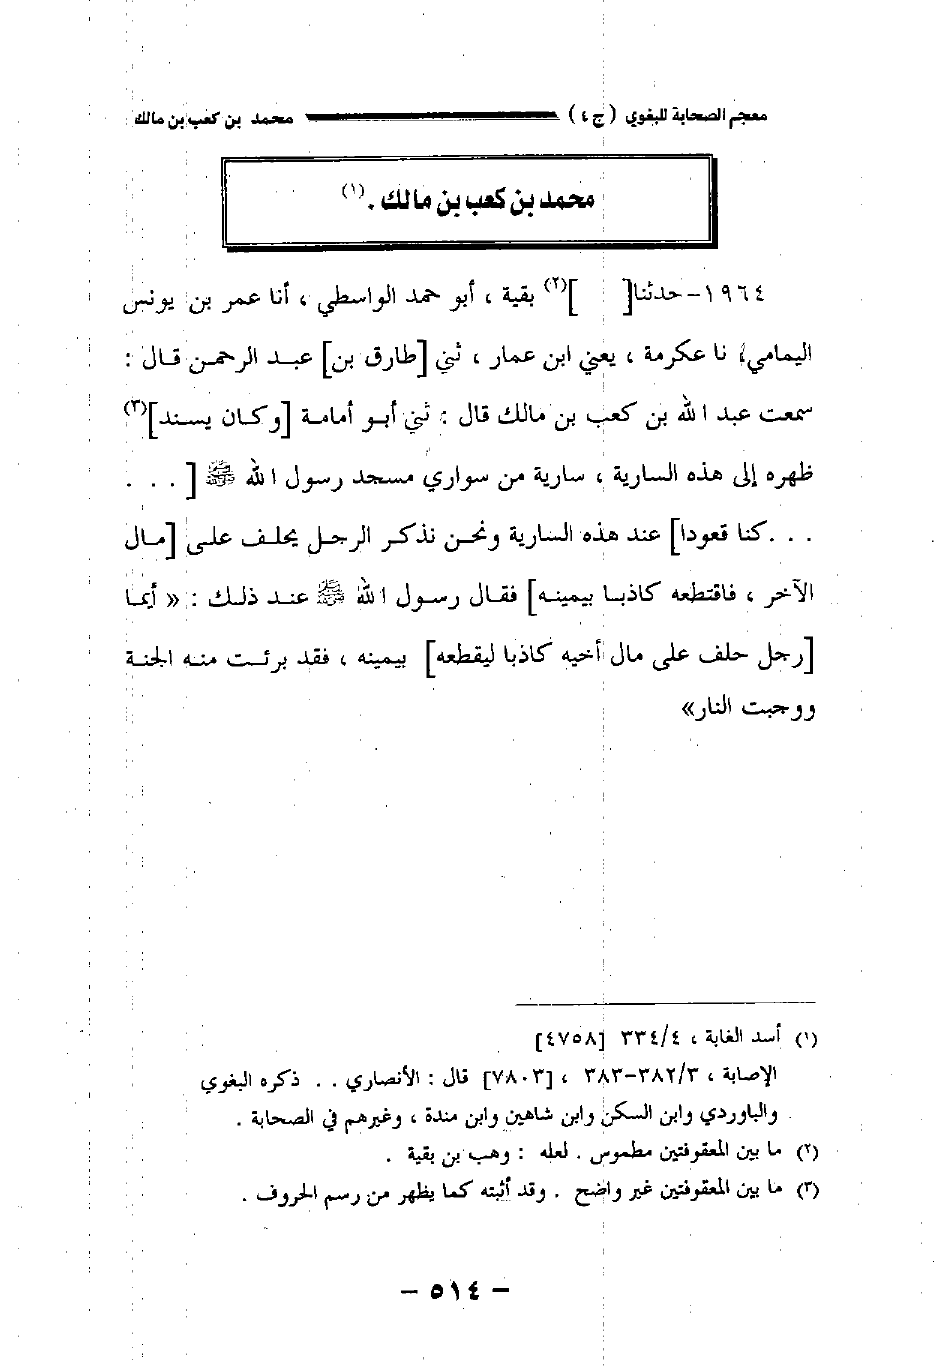 معجم الصحابة للبغوي (ج٤) محمد بن كعب بن مالك
محمد بن كعب بن مالك . (١)
١٩٦٤- حدثنا[ ](٢) بقية ، أبو حمد الواسطي ، أنا عمر بن يونس
اليمامي، نا عكرمة ، يعني ابن عمار ، ثني [طارق بن] عبد الرحمن قال :
سمعت عبد الله بن كعب بن مالك قال : ثني أبو أمامة [وكان يسند](٣)
ظهره إلى هذه السارية ، سارية من سواري مسجد رسول الله ﷺ [ . . .
. . .كنا قعودا] عند هذه السارية ونحن نذكر الرجل يحلف على [مال
الآخر ، فاقتطعه كاذبا بيمينه] فقال رسول الله ﷺ عند ذلك : « أيما
[رجل حلف على مال أخيه كاذبا ليقطعه] بيمينه ، فقد برئت منه الجنة
ووجبت النار»
(١) أسد الغابة ، ٣٣٤/٤ [٤٧٥٨]
الإصابة ، ٣٨٢/٣-٣٨٣ ، [٧٨٠٣] قال : الأنصاري . . ذكره البغوي
والباوردي وابن السكن وابن شاهين وابن مندة ، وغيرهم في الصحابة .
(٢) ما بين المعقوفتين مطموس . لعله : وهب بن بقية .
(٣) ما بين المعقوفتين غير واضح . وقد أثبته كما يظهر من رسم الحروف .
- ٥١٤ -